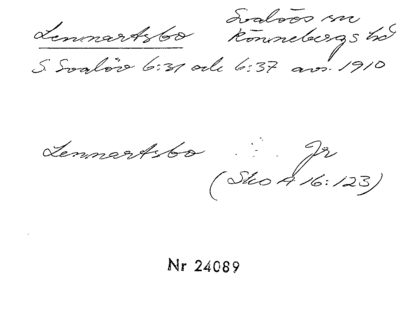 Lennartsbo Svalövs sn
Rönnebergs hd
S. Svalöv 6:31 och 6:37 avs. 1910
Lennartsbo Jr
(Sko A 16:123)
Nr 24089